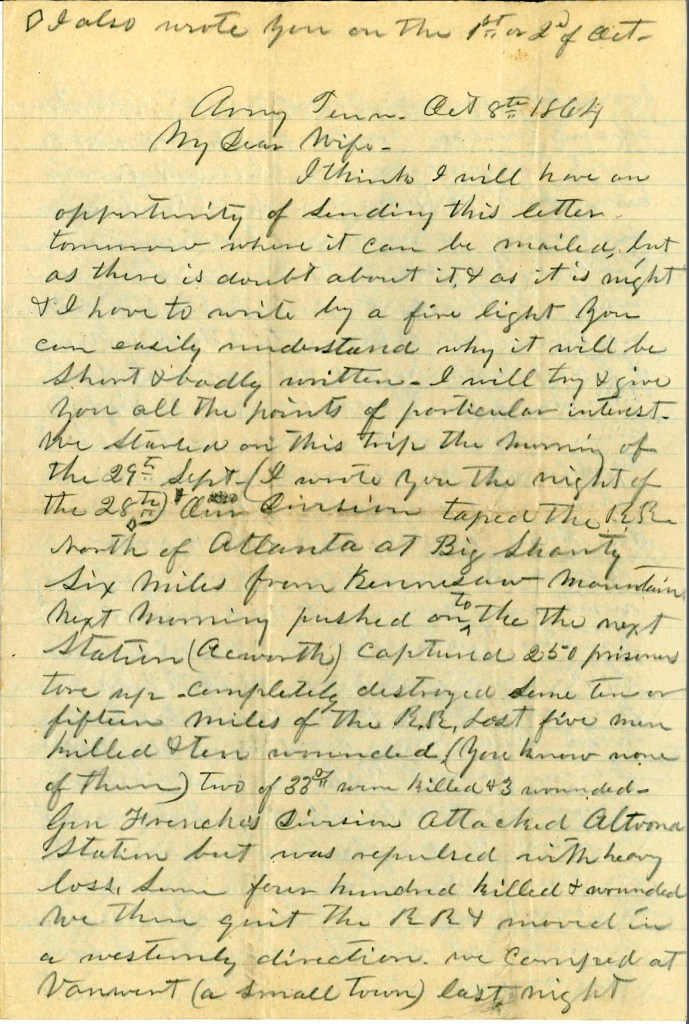 ◊ I also wrote you on the 1st or 2d of Oct-
Army Tenn. Oct 8th 1864
My Dear Wife-
I think I will have an
opportunity of sending this letter
tomorrow where it can be mailed, but
as there is doubt about it, & as it is night
& I have to write by a fire light you
can easily understand why it will be
short & badly written- I will try & give
you all the points of particular interest-
We started on this trip the morning of
the 29th Sept- (I wrote you the night of
the 28th) ◊ Our Division taped the R.R.
North of Atlanta at Big Shanty
Six miles from Kennesaw Mountain
Next morning pushed on to the the next
Station (Acworth) captured 250 prisoners
tore up completely destroyed some ten or
fifteen miles of the R.R. Lost five men
killed & ten wounded (you know none
of them) two of 33d were killed & 3 wounded-
Gen Frenches Division attacked Altoona
Station but was repulsed with heavy
loss, some four hundred killed & wounded
We then quit the R R & moved in
a westernly direction. we camped at
Vanwert (a small town) last night